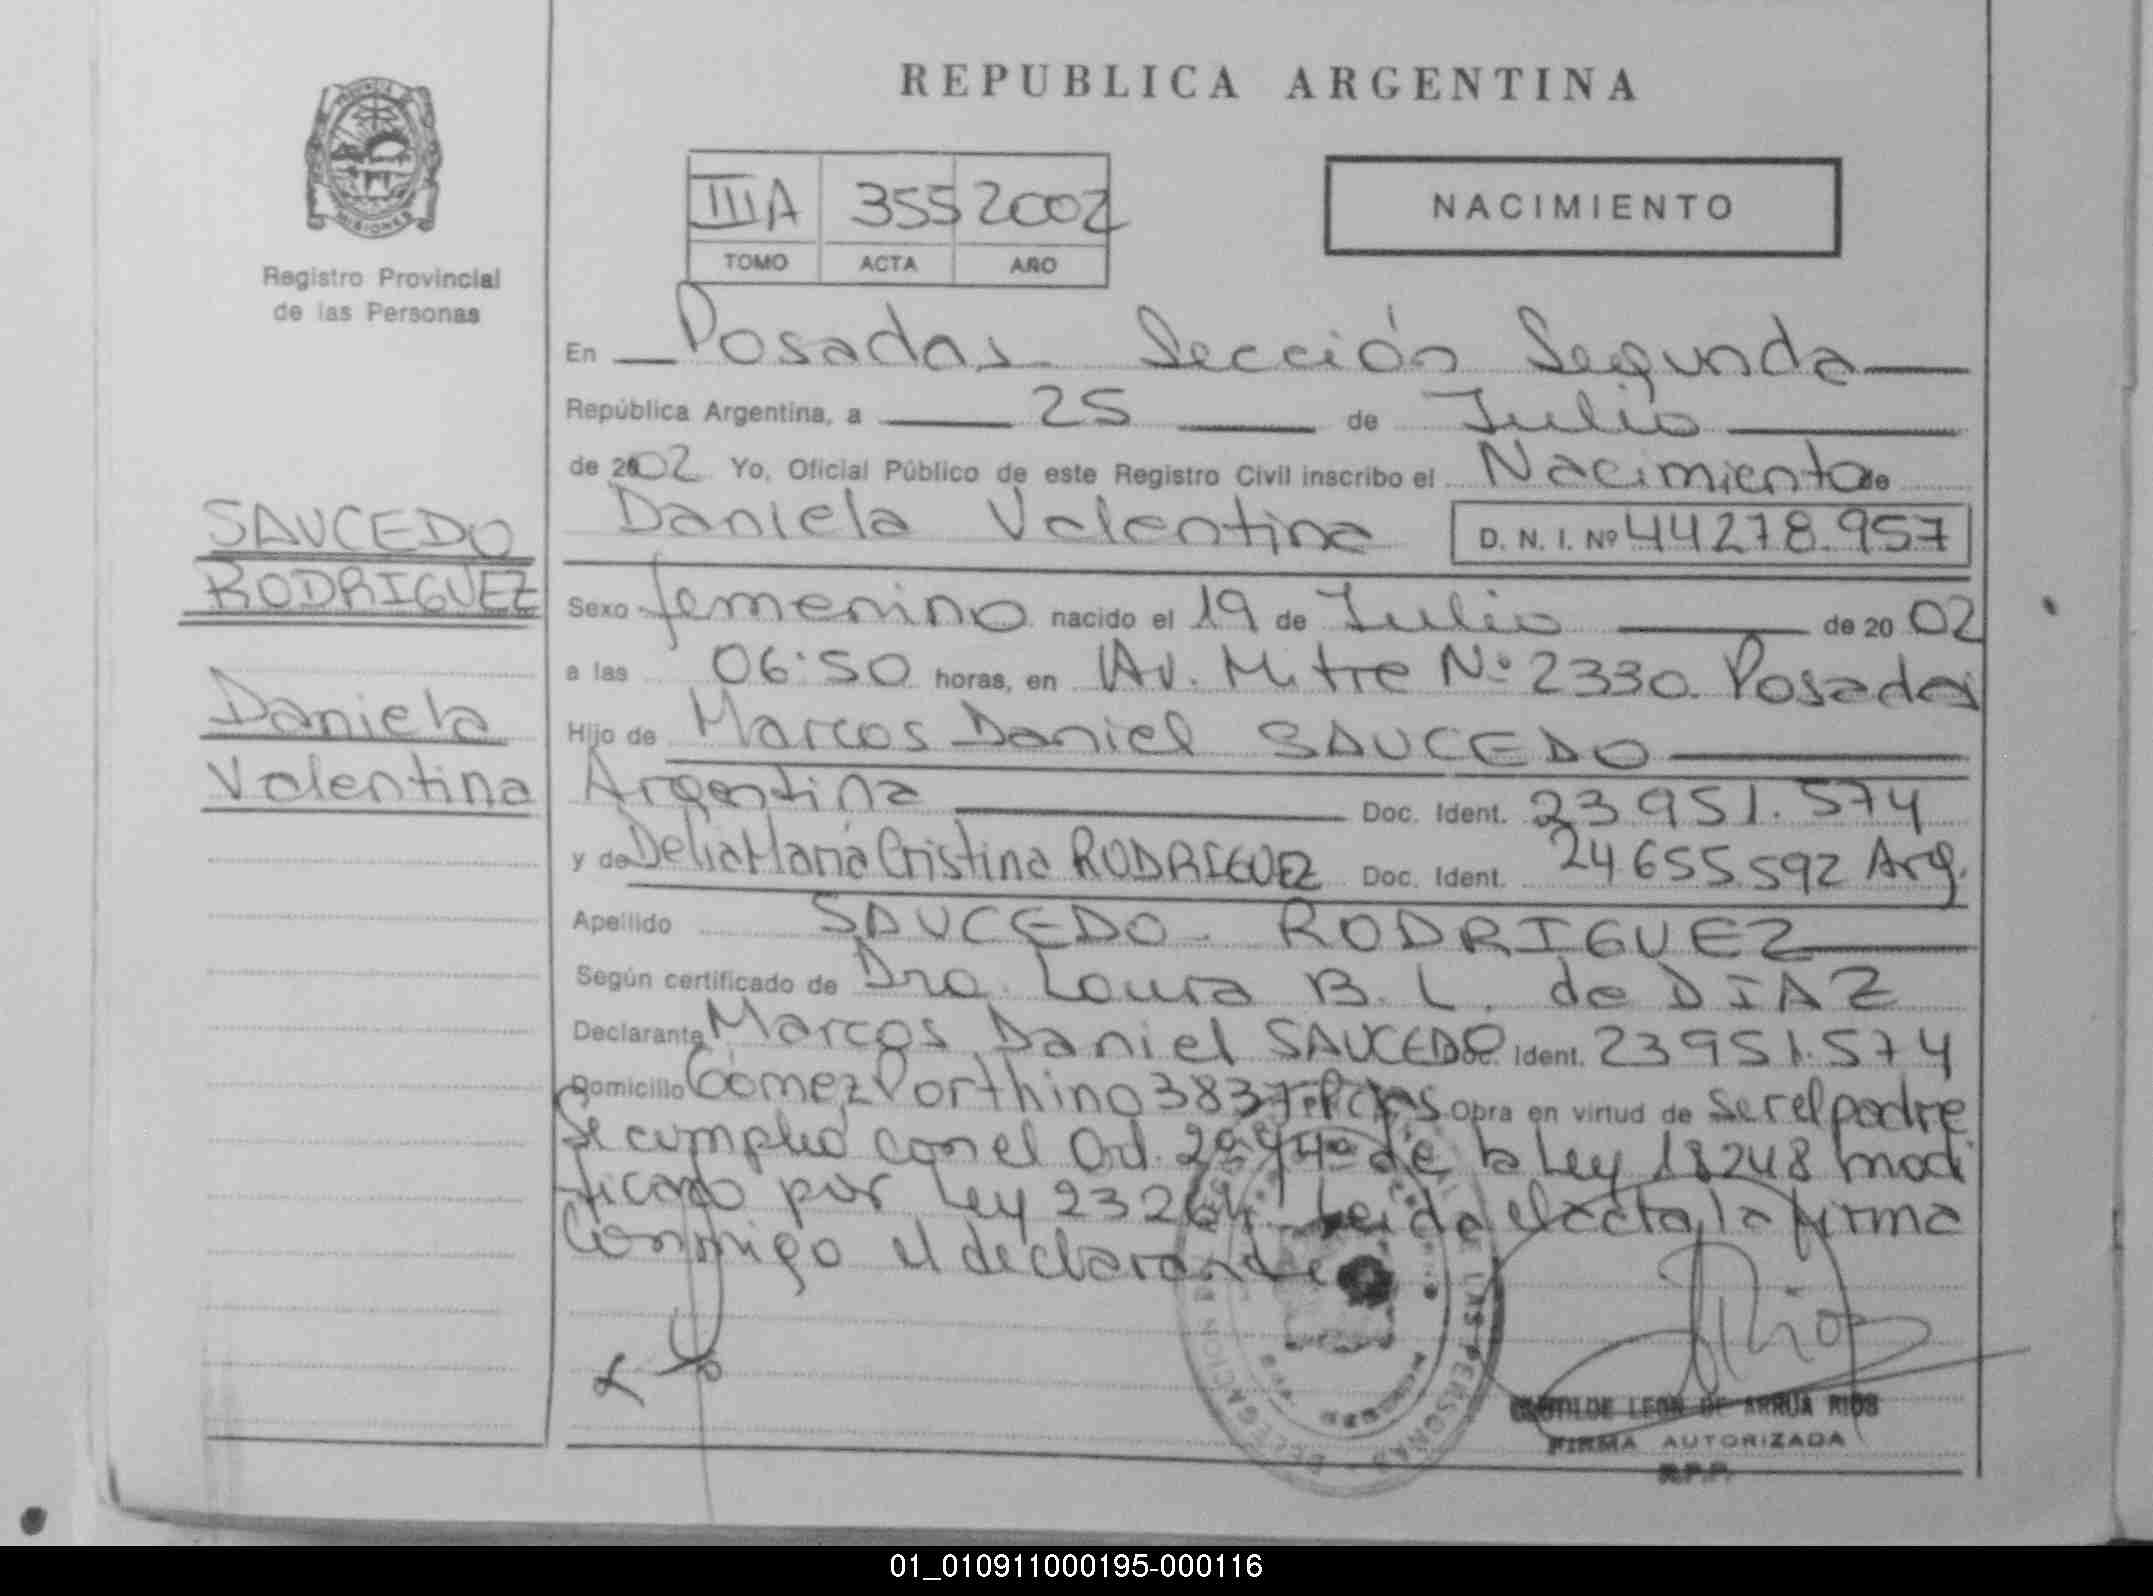 REPUBLICA ARGENTINA
MISIONES
Registro Provincial
de las Personas
IIIA 355 2002
TOMO ACTA AÑO
NACIMIENTO
En Posadas Sección Segunda
República Argentina, a 25 de Julio
de 2002 Yo, Oficial Público de este Registro Civil inscribo el Nacimiento de
Daniela Valentina D. N. I. Nº 44278.957
SAUCEDO
RODRIGUEZ
Daniela
Valentina
Sexo femenino nacido el 19 de Julio de 20 02
a las 06:50 horas, en Av. Mitre Nº 2330. Posadas
Hijo de Marcos Daniel SAUCEDO
Argentina Doc. Ident. 23951.574
y de Delia María Cristina RODRIGUEZ Doc. Ident. 24655.592 Arg.
Apellido SAUCEDO RODRIGUEZ
Según certificado de Dra. Laura B. L. de DIAZ
Declarante Marcos Daniel SAUCEDO Doc. Ident. 23951.574
Domicilio Gómez Porthino 3837 Pdas Obra en virtud de ser el padre
Se cumplió con el Ord. 2º y 4º de la Ley 18248 modi
ficado por Ley 23264. Leída el acta, la firma
Conmigo el declarante
DELEGACION DE LAS PERSONAS
Rios
CLOTILDE LEON DE ARRUA RIOS
FIRMA AUTORIZADA
R.P.P.
01_010911000195-000116